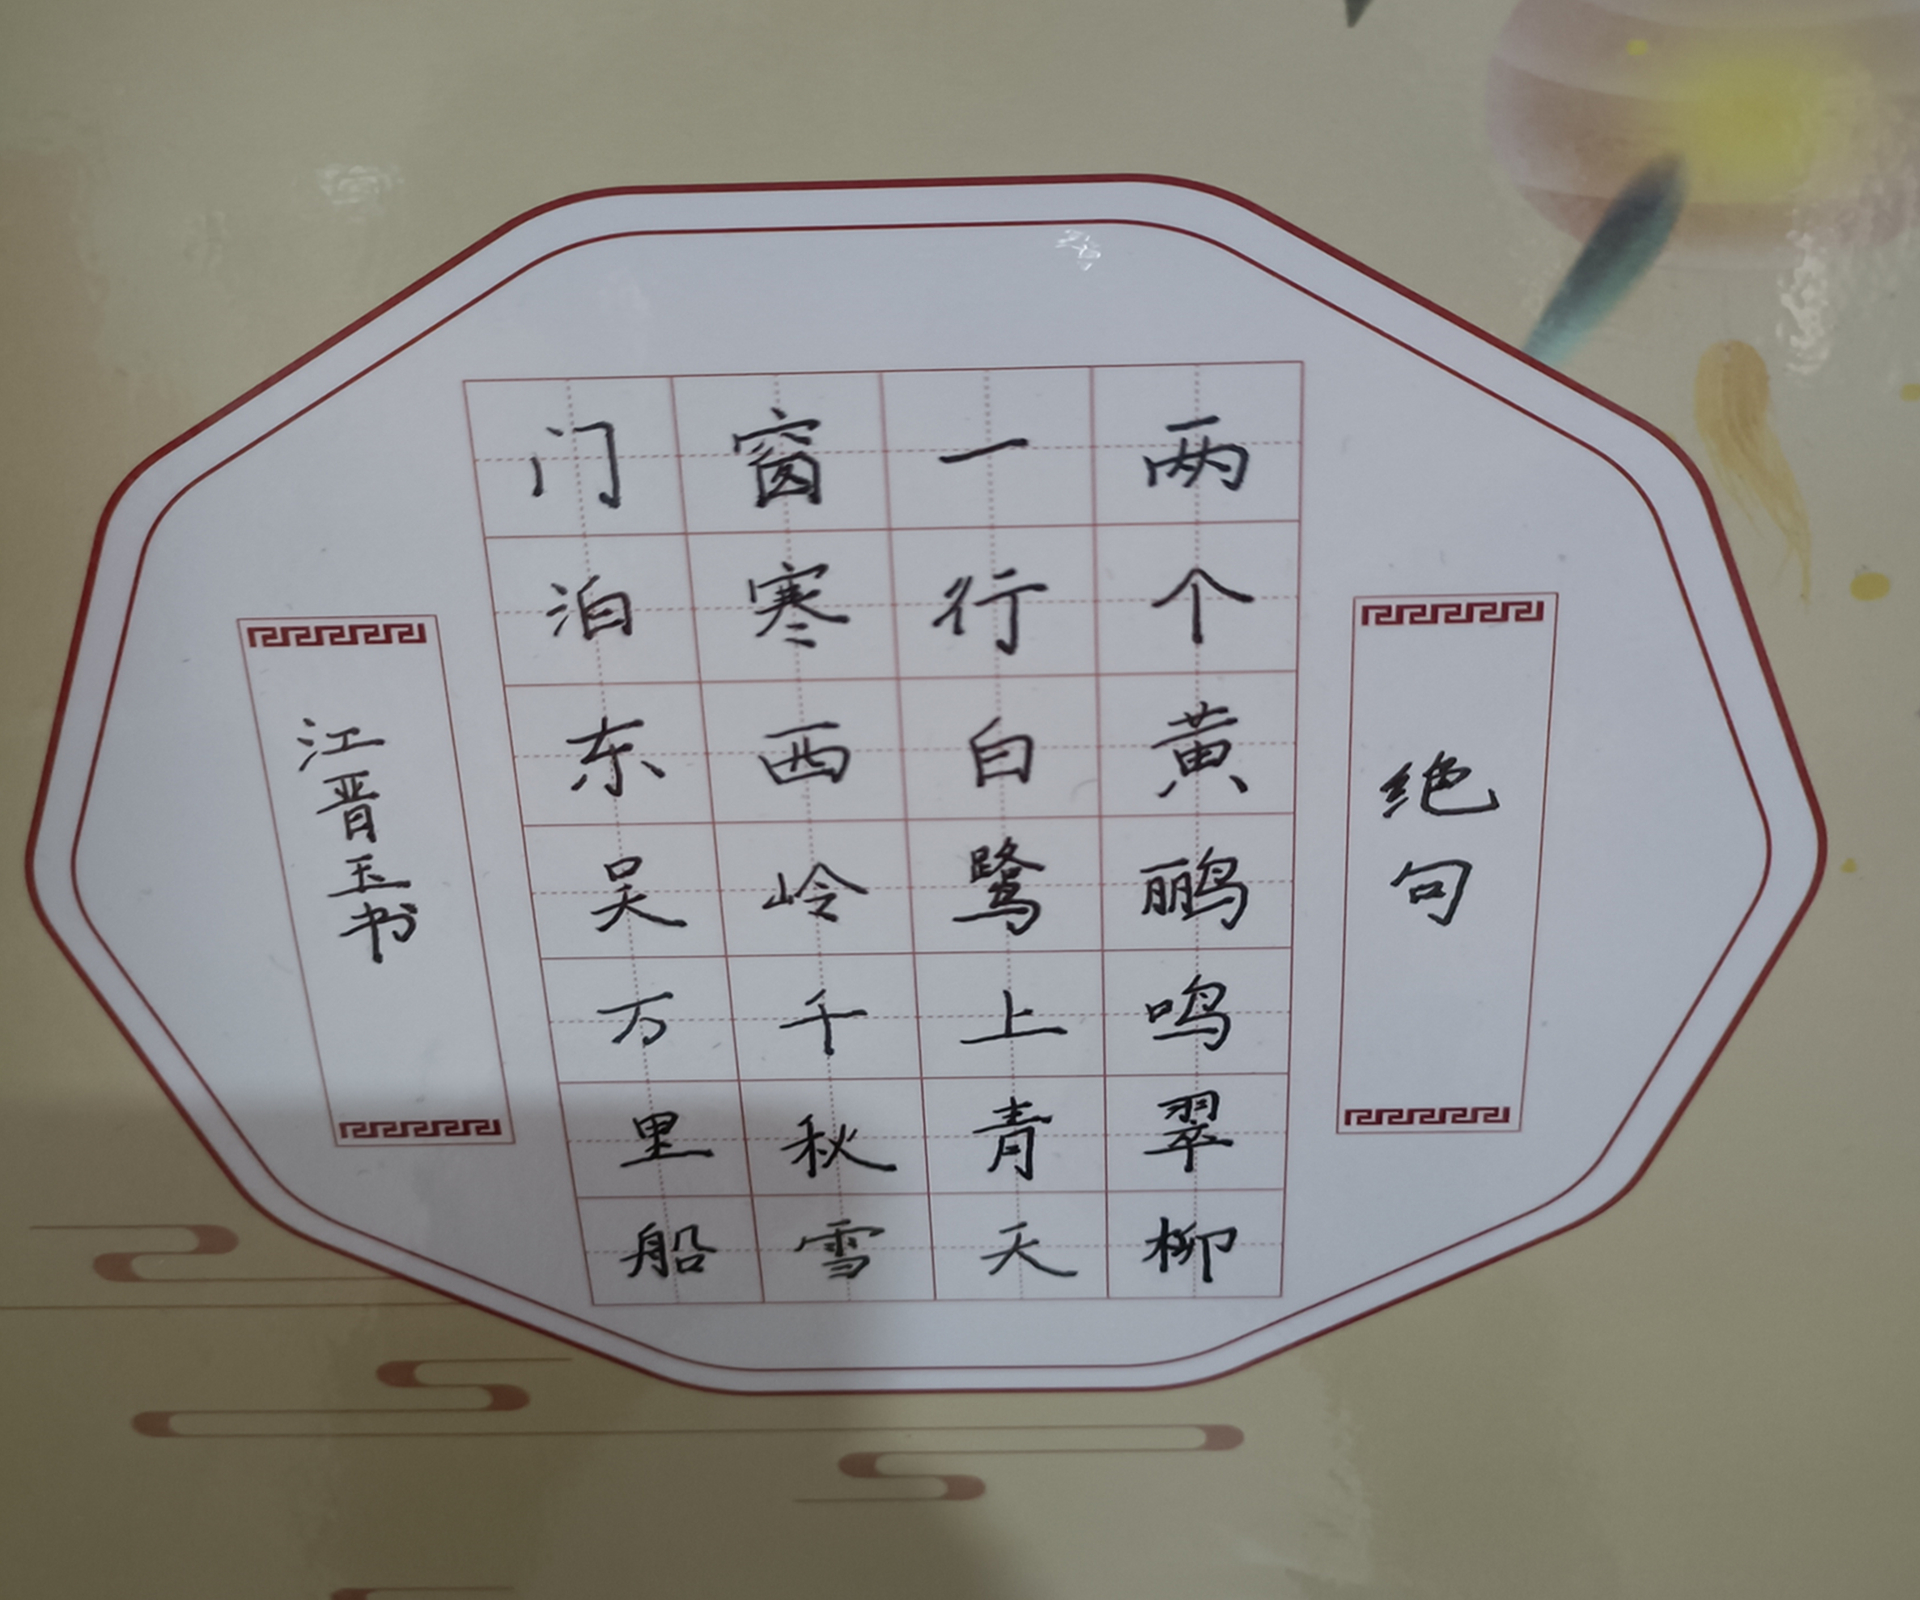 绝句
两个黄鹂鸣翠柳
一行白鹭上青天
窗寒西岭千秋雪
门泊东吴万里船
江晋玉书